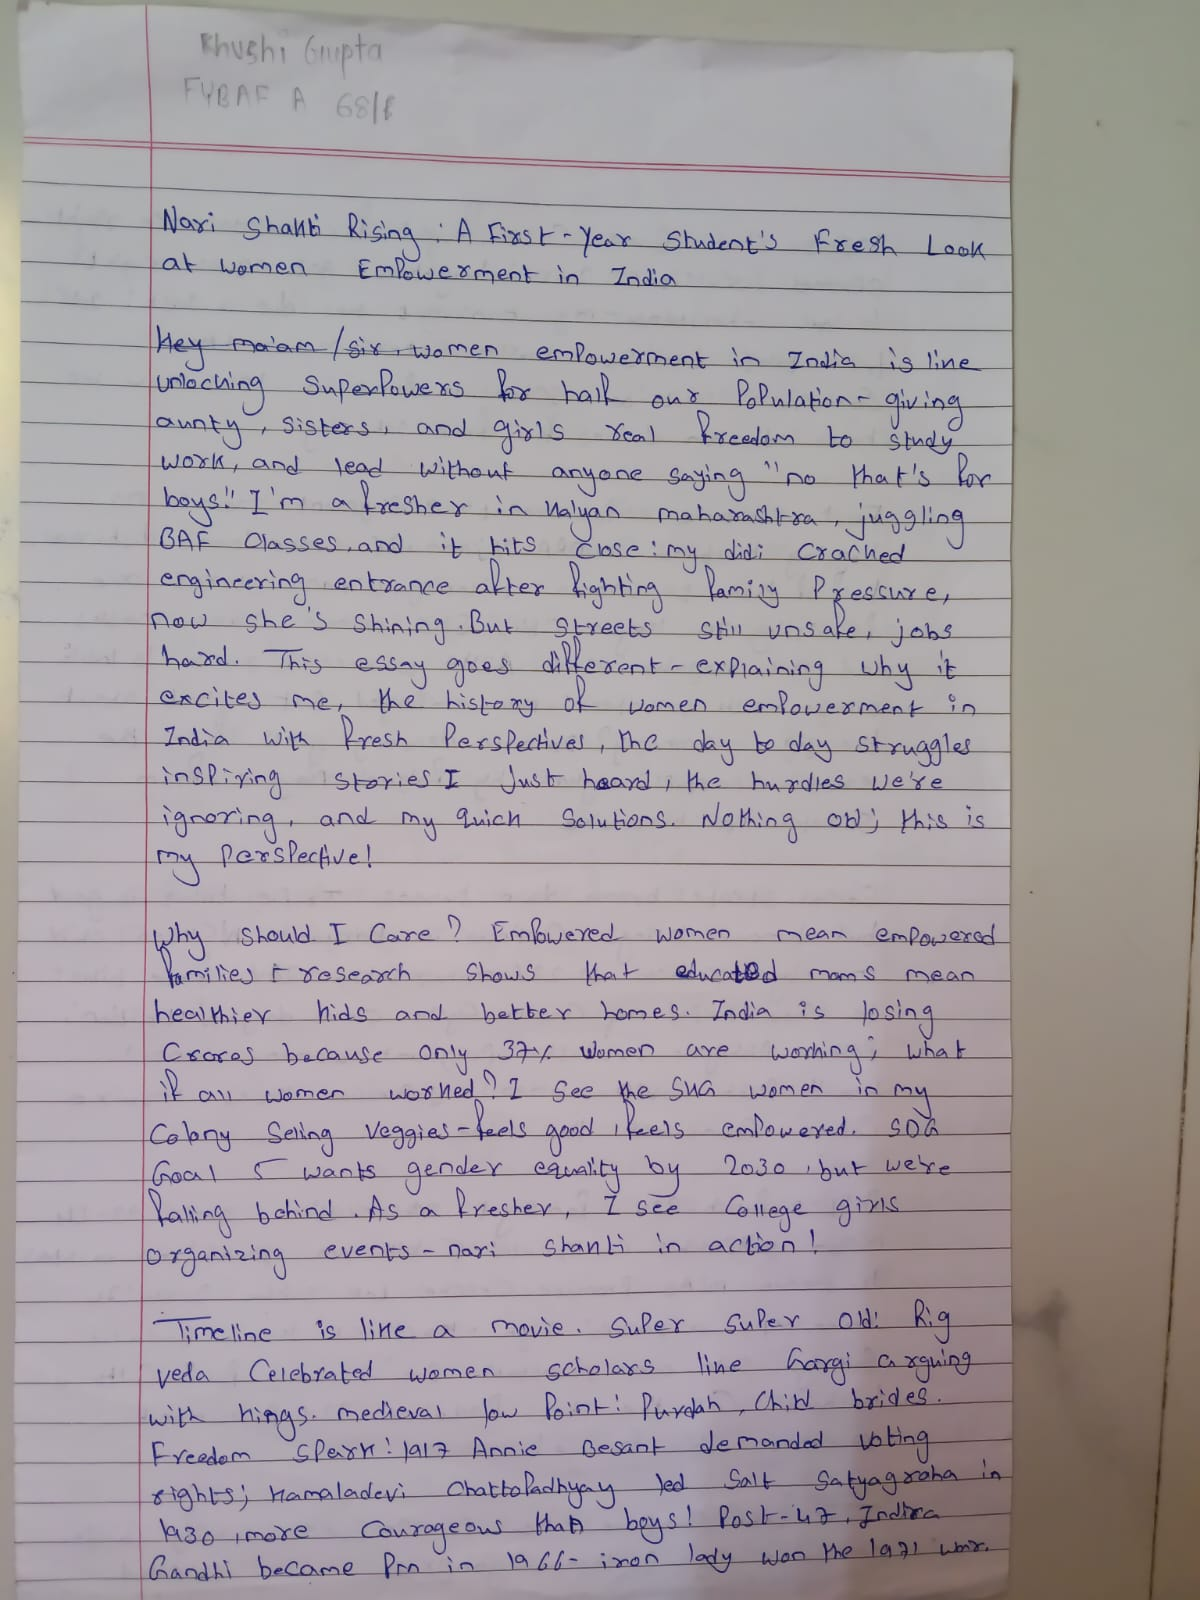 Khushi Gupta
FYBAF A 68/B
Nari Shakti Rising : A First-Year Student's Fresh Look
at women Empowerment in India
Hey ma'am/sir, women empowerment in India is like
unlocking superpowers for half our population - giving
aunty, sisters, and girls real freedom to study
work, and lead without anyone saying "no that's for
boys!" I'm a fresher in Kalyan maharashtra, juggling
BAF Classes, and it hits close: my didi cracked
engineering entrance after fighting family pressure,
now she's shining. But streets still unsafe, jobs
hard. This essay goes different - explaining why it
excites me, the history of women empowerment in
India with fresh perspectives, the day to day struggles
inspiring stories I just heard, the hurdles we're
ignoring, and my quick solutions. Nothing old; this is
my perspective!
Why should I care? Empowered women mean empowered
families + research shows that educated moms mean
healthier kids and better homes. India is losing
Crores because only 37% women are working; what
if all women worked? I see the SHG women in my
Colony selling veggies - feels good, feels empowered. SDG
Goal 5 wants gender equality by 2030, but we're
falling behind. As a fresher, I see College girls
organizing events - nari shakti in action!
Timeline is like a movie. Super super old: Rig
veda Celebrated women scholars like Gargi arguing
with kings. medieval low point: Purdah, Child brides.
Freedom spark: 1917 Annie Besant demanded voting
rights; Kamaladevi Chattopadhyay led Salt Satyagraha in
1930, more courageous than boys! Post-47, Indira
Gandhi became Pm in 1966 - iron lady won the 1971 war.